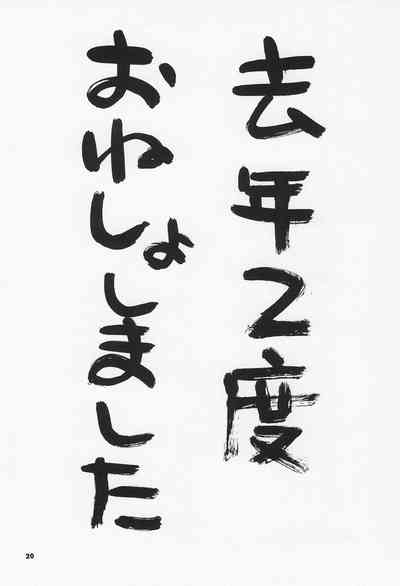 去年2度
おねしょしました
20